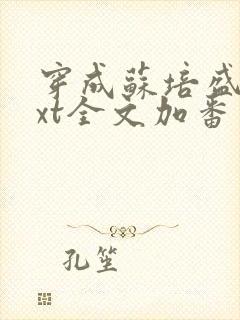 穿成蘇培盛
xt全文加番
孔笙